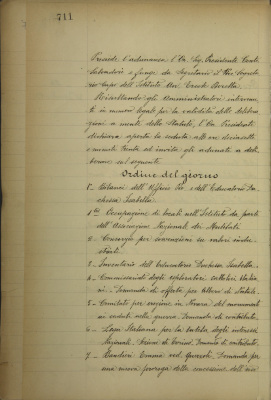 711
Presiede l'adunanza l'On. Sig. Presidente Conte
e funge da Segretario il Vice Segreta-
rio Capo dell'Istituto Avv.
Risultando gli Amministratori intervenu-
ti in numero legale per la validità delle delibera-
zioni a mente dello Statuto, l'On. Presidente
dichiara aperta la seduta alle ore diciassette
e minuti trenta ed invita gli adunati a deli-
berare sul seguente
Ordine del giorno
1° Bilanci dell'Opera Pia e dell'Educatorio Du-
chessa Isabella
1 bis Occupazione di locali nell'Istituto da parte
dell'Associazione Nazionale dei Mutilati
2 - Consorzio per sovvenzione su valori indu-
striali
3 - Inventario dell'Educatorio Duchessa Isabella
4 - Commissariati degli esploratori cattolici
Domanda di offerta per Albero di Natale
5 - Comitato per erezione in Novara del monumento
ai caduti nella guerra domanda di contributo
6 - Lega Italiana per la tutela degli interessi
Nazionali Sezione di Torino. Domanda di contributo
7 - Bianchini Emma ved. Domanda per
una nuova proroga della concessione dell'uso